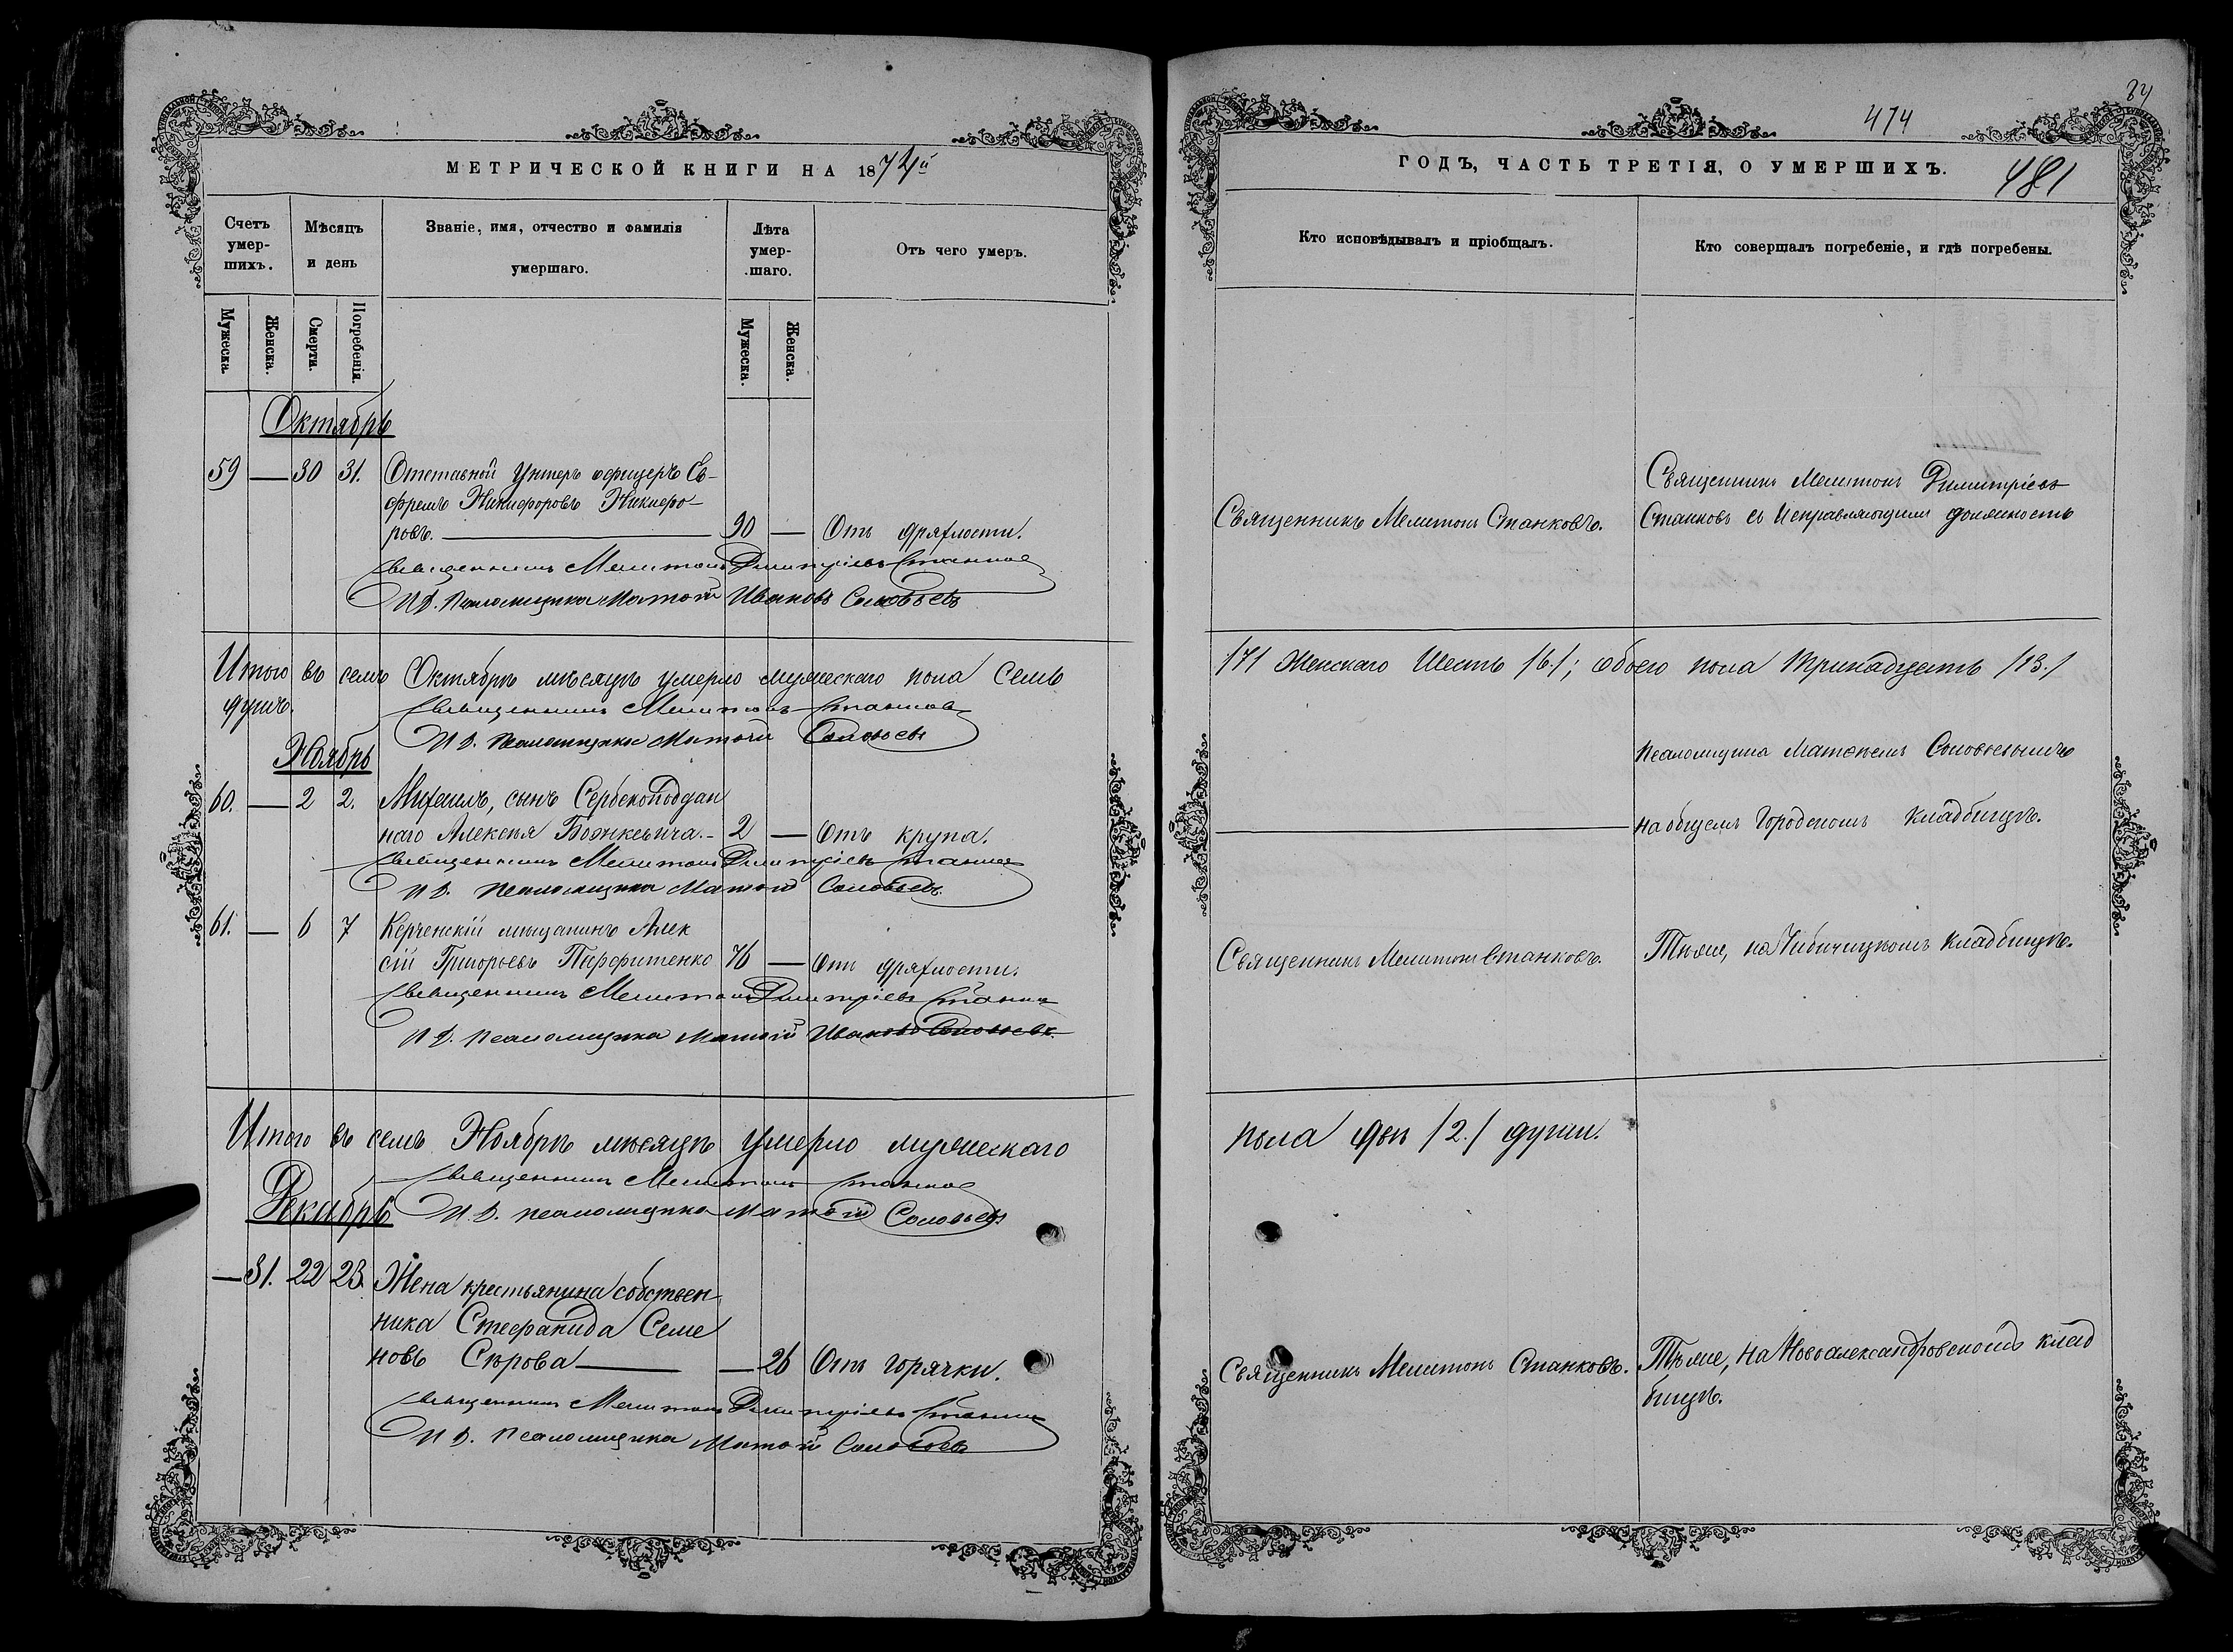 МЕТРИЧЕСКОЙ КНИГИ НА 1874й
Счетъ умер-шихъ.
Мѣсяцъ и день
Званіе, имя, отчество и фамилія умершаго.
Лѣта умер-шаго.
Отъ чего умеръ.
Мужеска.
Женска.
Смерти.
Погребенія.
Мужеска.
Женска.
Октябрь
59 — 30 31. Отставной Унтеръ офицеръ Ев-
фремъ Никифоровъ Никифо-
ровъ. — 90 — Отъ дряхлости.
Священникъ Мелитонъ Димитріевъ Станковъ
И. Д. Псаломщика Матѳій Ивановъ Соловьевъ
Итого въ семъ Октябрѣ мѣсяцѣ умерло мужескаго пола семь
душъ.
Священникъ Мелитонъ Станковъ
И Д. Псаломщика Матѳій Соловьевъ
Ноябрь
60. — 2 2. Михаилъ, сынъ Сербскоподдан
наго Алексѣя Божкевича. — 2 — Отъ крупа.
Священникъ Мелитонъ Димитріевъ Станковъ
И Д. Псаломщика Матѳій Соловьевъ
61. — 6 7 Керченскій мѣщанинъ Алек
сій Григорьевъ Парфитенко 76 — Отъ дряхлости.
Священникъ Мелитонъ Димитріевъ Станковъ
И Д. Псаломщика Матѳій Ивановъ Соловьевъ.
Итого въ семъ Ноябрѣ мѣсяцѣ умерло мужескаго
Священникъ Мелитонъ Станковъ
Декабрь
И. Д. Псаломщика Матѳій Соловьевъ
— 31. 22 23. Жена крестьянина собствен
ника Стефанида Семе
новъ Сѣрова — — 26 Отъ горячки.
Священникъ Мелитонъ Димитріевъ Станковъ
И Д. Псаломщика Матѳій Соловьевъ
474
ГОДЪ, ЧАСТЬ ТРЕТІЯ, О УМЕРШИХЪ.
481
Кто исповѣдывалъ и пріобщалъ.
Кто совершалъ погребеніе, и гдѣ погребены.
Священникъ Мелитонъ Станковъ.
Священникъ Мелитонъ Димитріевъ
Станковъ съ Исправляющимъ должность
/7/ Женскаго Шесть /6./; обоего пола тринадцать /13./
псаломщика Матѳіемъ Соловьевымъ
на общемъ Городскомъ кладбищѣ.
Священникъ Мелитонъ Станковъ.
Тѣже, на кладбищѣ.
пола двѣ /2./ души.
Священникъ Мелитонъ Станковъ.
Тѣже, на Новоалександровскомъ клад
бищѣ.